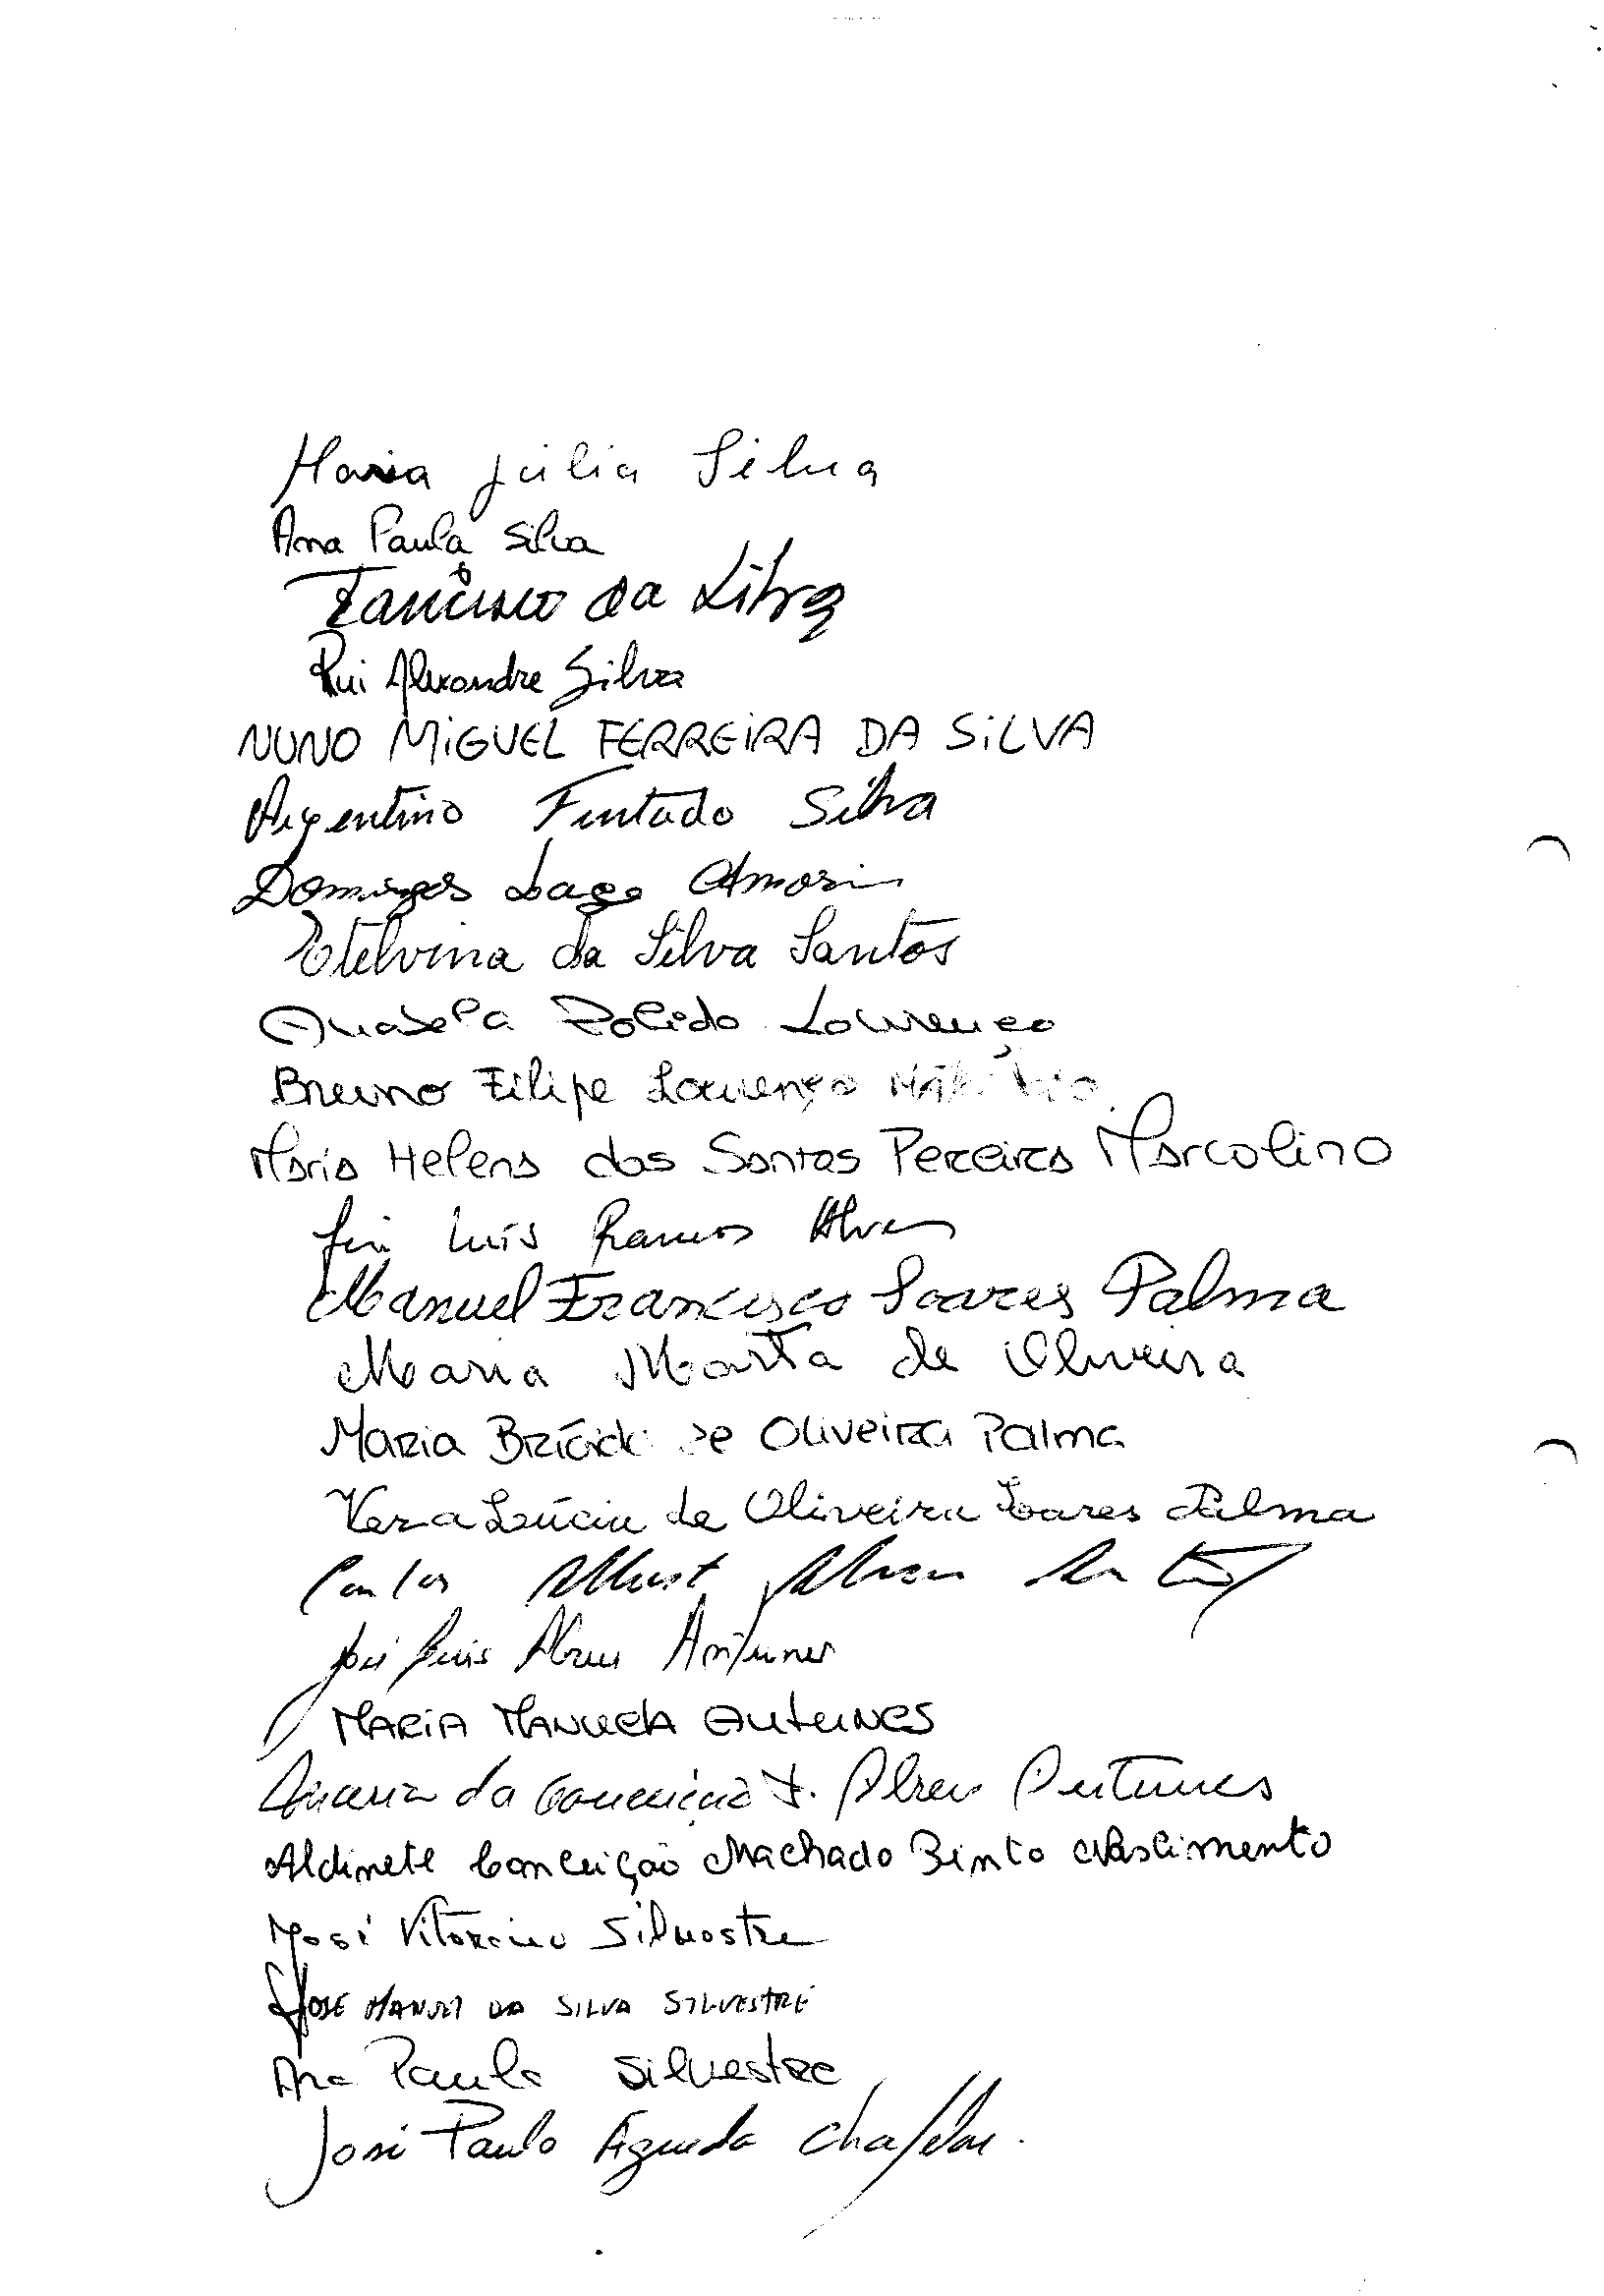 Maria Júlia Silva
Ana Paula Silva
Francisco da Silva
Rui Alexandre Silva
NUNO MIGUEL FERREIRA DA SILVA
Argentino Furtado Silva
Domingos Lago Amorim
Etelvina da Silva Santos
Polido Lourenço
Bruno Filipe Lourenço
Maria Helena dos Santos Pereira Marcolino
Luís Ramos Alves
Manuel Francisco Soares Palma
Maria Marta de Oliveira
Maria Brícida de Oliveira Palma
Vera Lúcia de Oliveira Soares Palma
Carlos Abreu
José Luis Abreu Antunes
MARIA MANUELA ANTUNES
Maria da Conceição F. Abreu Antunes
Aldinete Conceição Machado Binto Nascimento
José Vitorino Silvestre
JOSÉ MANUEL DA SILVA SILVESTRE
Ana Paula Silvestre
José Paulo Águeda